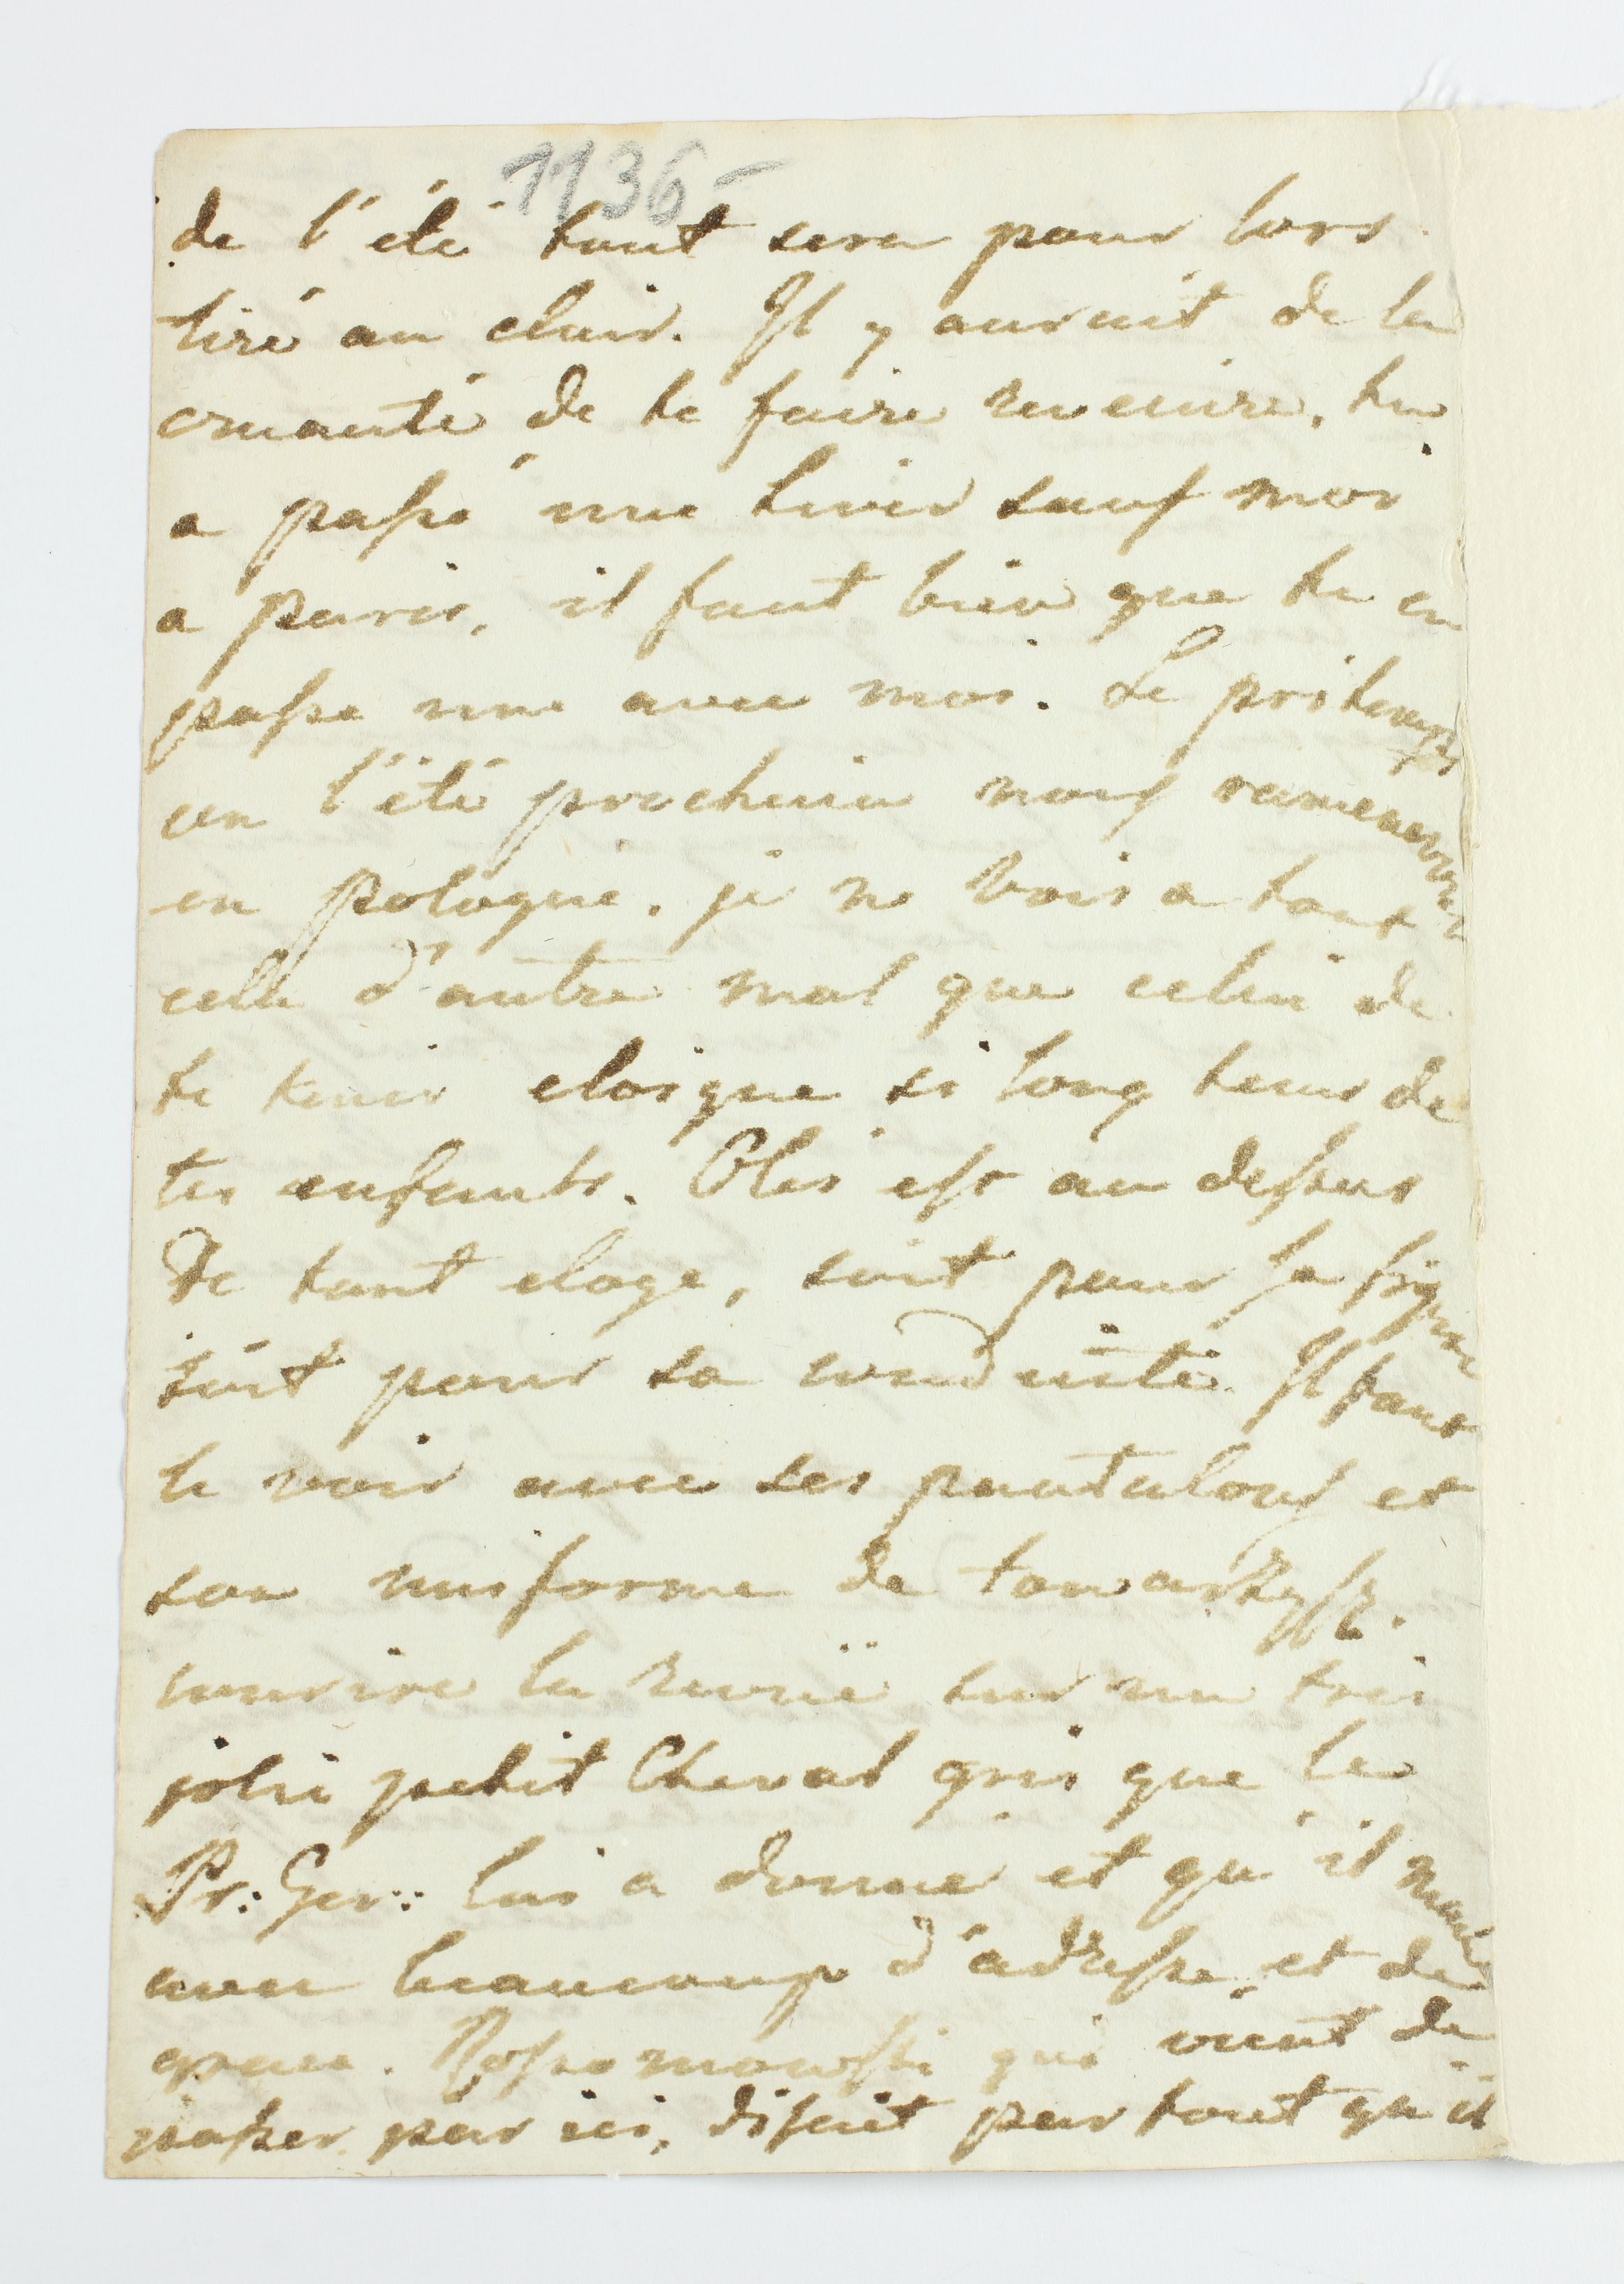 1136-
de l'été tout sera pour lors
tiré au clair. Il y aurait de la
cruauté de te faire revenire, tu
a passé une hiver sauf moi
a paris, il faut bien que tu en
passe une avec moi. Le printemps
ou l'été prochain nous ramenerons
en pologne. je ne vois a tout
cela d'autre mal que celui de
te tenir eloigne si long tems de
tes enfants. Oles est au dessus
de tout eloge, soit pour sa figure
soit pour sa conduite. Il faut
le voir avec ses pantalons et
son uniforme de towarzysz.
courire la revüe sur un tres
joli petit Cheval gris que le
Pr: Gen: lui a donne et qu'il monte
avec beaucoup d'adresse, et de
grace. qui vient de
passer par ici, disait par tout qu'il